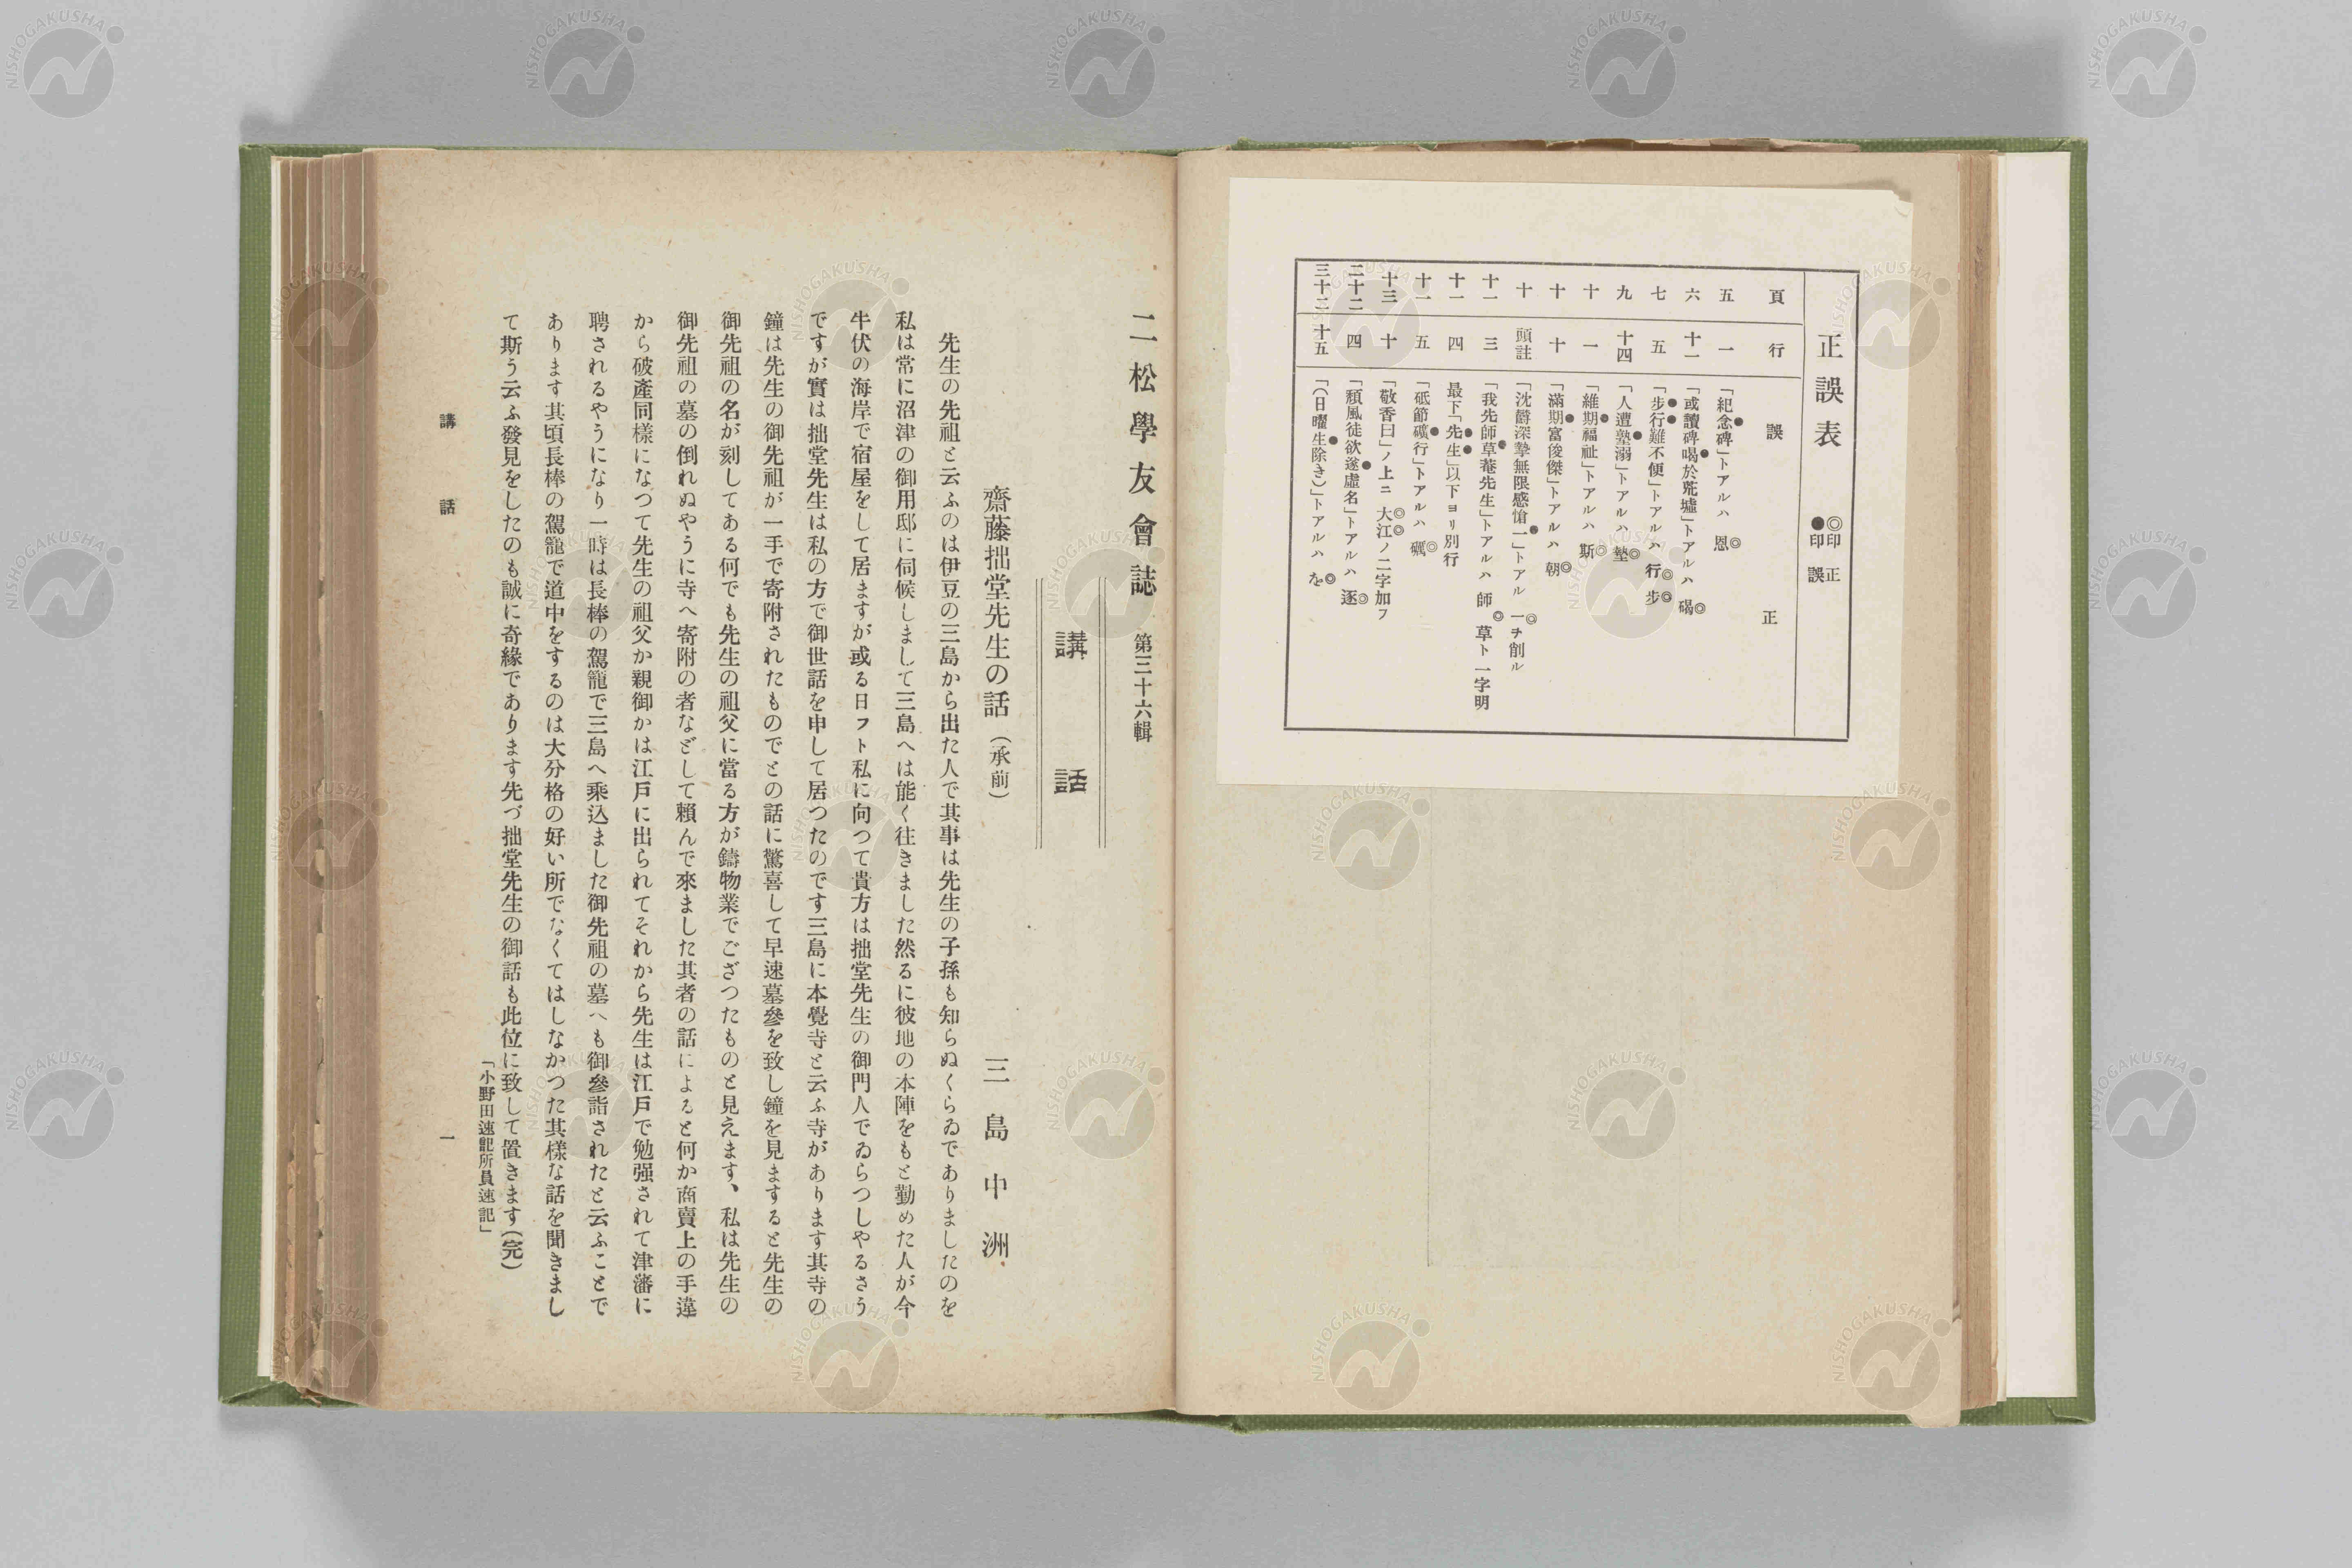 正誤表 ◎印正 ●印誤
頁 行 誤 正
五 一 「紀念碑」トアルハ 恩
六 十一 「或讀碑喝於荒墟」トアルハ 碣
七 五 「步行難不便」トアルハ 行步
九 十四 「人遭塾溺」トアルハ 墊
十 一 「維期福祉」トアルハ 斯
十 十 「滿期富俊傑」トアルハ 朝
十 頭註 「沈欝深摯無限感愴一」トアル 一ヲ削ル
十一 三 「我先師草菴先生」トアルハ 師 草ト一字明
十一 四 最下「先生」以下ヨリ別行
十一 五 「砥節礦行」トアルハ 礪
十三 十 「敬香曰」ノ上ニ 大江ノ二字加フ
二十二 四 「頽風徒欲遂虛名」トアルハ 逐
三十二 十五 「(日曜生除き)」トアルハ を
二松學友會誌 第三十六輯
講話
齋藤拙堂先生の話(承前) 三島中洲
先生の先祖と云ふのは伊豆の三島から出た人で其事は先生の子孫も知らぬくらゐでありましたのを
私は常に沼津の御用邸に伺候しまして三島へは能く往きました然るに彼地の本陣をもと勤めた人が今
牛伏の海岸で宿屋をして居ますが或る日フト私に向つて貴方は拙堂先生の御門人でゐらつしやるさう
ですが實は拙堂先生は私の方で御世話を申して居つたのです三島に本覺寺と云ふ寺があります其寺の
鐘は先生の御先祖が一手で寄附されたものでとの話に驚喜して早速墓參を致し鐘を見ますると先生の
御先祖の名が刻してある何でも先生の祖父に當る方が鑄物業でござつたものと見えます、私は先生の
御先祖の墓の倒れぬやうに寺へ寄附の者などして賴んで來ました其者の話によると何か商賣上の手違
から破產同樣になつて先生の祖父か親御かは江戶に出られてそれから先生は江戶で勉强されて津藩に
聘されるやうになり一時は長棒の駕籠で三島へ乘込ました御先祖の墓へも御參詣されたと云ふことで
あります其頃長棒の駕籠で道中をするのは大分格の好い所でなくてはしなかつた其樣な話を聞きまし
て斯う云ふ發見をしたのも誠に奇緣であります先づ拙堂先生の御話も此位に致して置きます(完)
「小野田速記所員速記」
講話 一
NISHOGAKUSHA